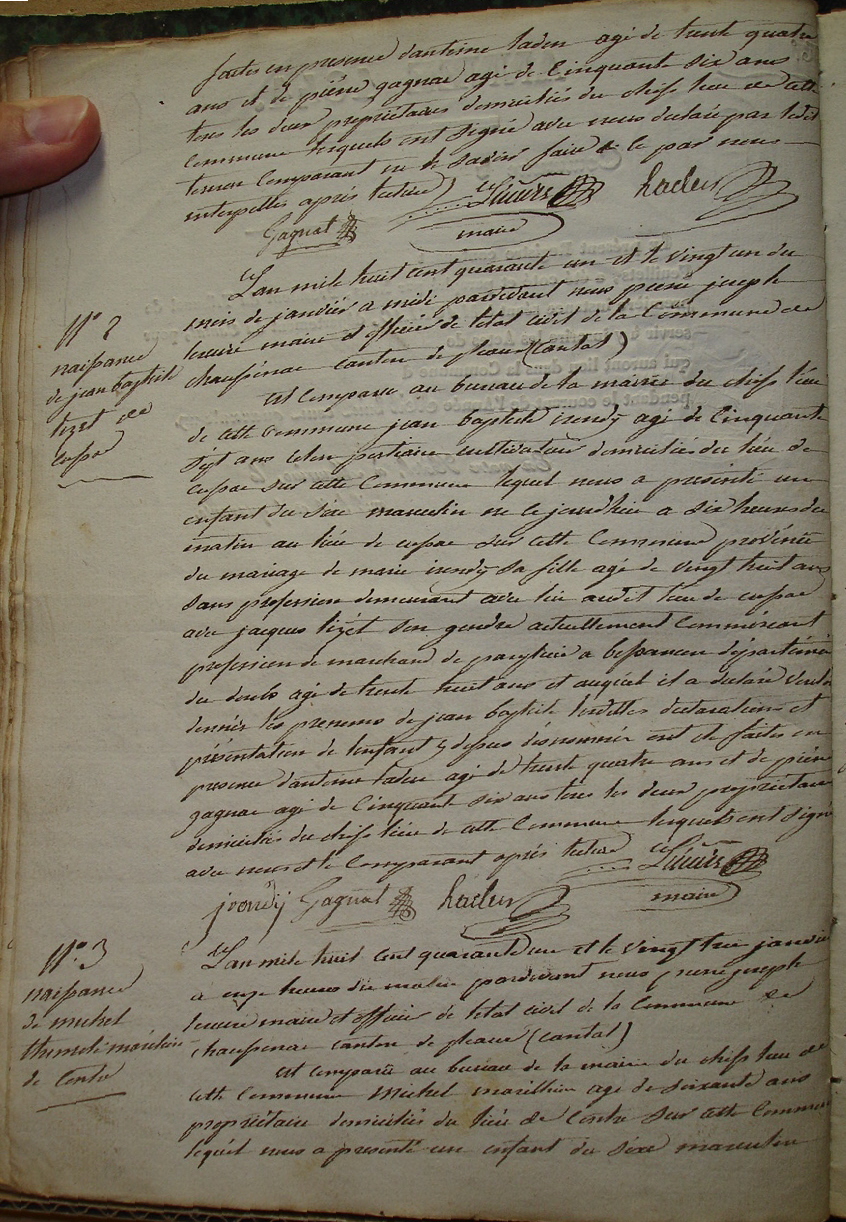 faites en presence d'antoine laden agé de trente quatre
ans et de piére gagnac agé de Cinquant six ans
tous les deux propriétaires domiciliés du chefs lieu de cette
Commune lesquels ont signé avec nous déclaré par ledit
Comparant ne le savoir faire de ce par nous
interpellés aprés lecture
Gagnal maire
Lan mile huit cent quarante un et le vingt un du
mois de janvier a midi pardevant nous piere joseph
maire et officier de letat civil de la Commune de
chaussenac canton de pleaux (Cantal)
N° 2
naissance
de jean baptiste
tizet de
cussac
est Comparu au bureau de la mairie du chefs lieu
de cette Commune jean baptiste agé de Cinquante
sept ans cultivateur domiciliés du lieu de
cussac sur cette Commune lequel nous a présenté un
enfant du sixe masculin né ce jourdhui a six heures du
matin au lieu de cussac sur cette Commune
du mariage de marie sa fille agé de vingt huit ans
sans profession demeurant avec lui audit lieu de cussac
avec jacques tizet son gendre actuellement Commércant
profession de marchand de a bessancon départemen
du doubs agé de trente huit ans et auquel il a déclaré vouloir
donnér les prenoms de jean baptiste lesdittes declarations et
présentation de lenfant y dessus dénommé ont été faites en
presence d'antoine laden agé de trente quatre ans et de piére
gagnac agé de Cinquant six ans tous les deux propriétaires
domiciliés du chefs lieu de cette Commune lesquels ont signé
avec nous et le Comparant aprés lecture
Gagnal maire
N° 3
naissance
de michel
de Contre
Lan mile huit cent quarante un et le vingt trois janvier
a onze heures du matin pardevant nous piere joseph
maire et officier de letat civil de la Commune de
chaussenac canton de pleaux (cantal)
est Comparu au bureau de la mairie du chefs lieu de
cette Commune Michel agé de soixante ans
propriétaire domiciliés du lieu de Contre sur cette Commune
lequel nous a presenté un enfant du sixe masculin